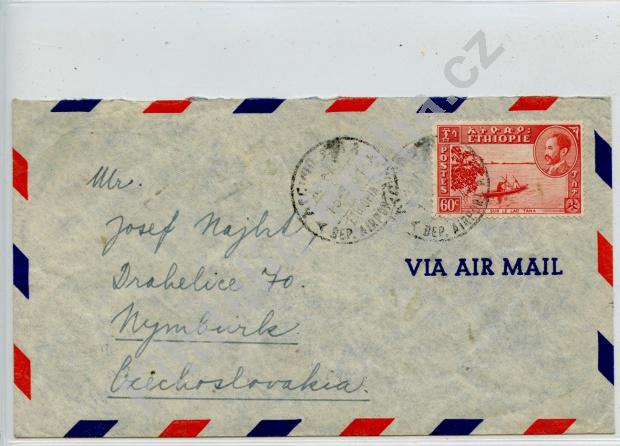 Mr.
Josef Najht
Drahelice 70.
Nymburk
Czechoslovakia.
ኢትዮጵያ
ETHIOPIE
POSTES
60c
SUR LE LAC TANA
DEP. AIRPORT
DEP. AIRPORT
VIA AIR MAIL
.cz